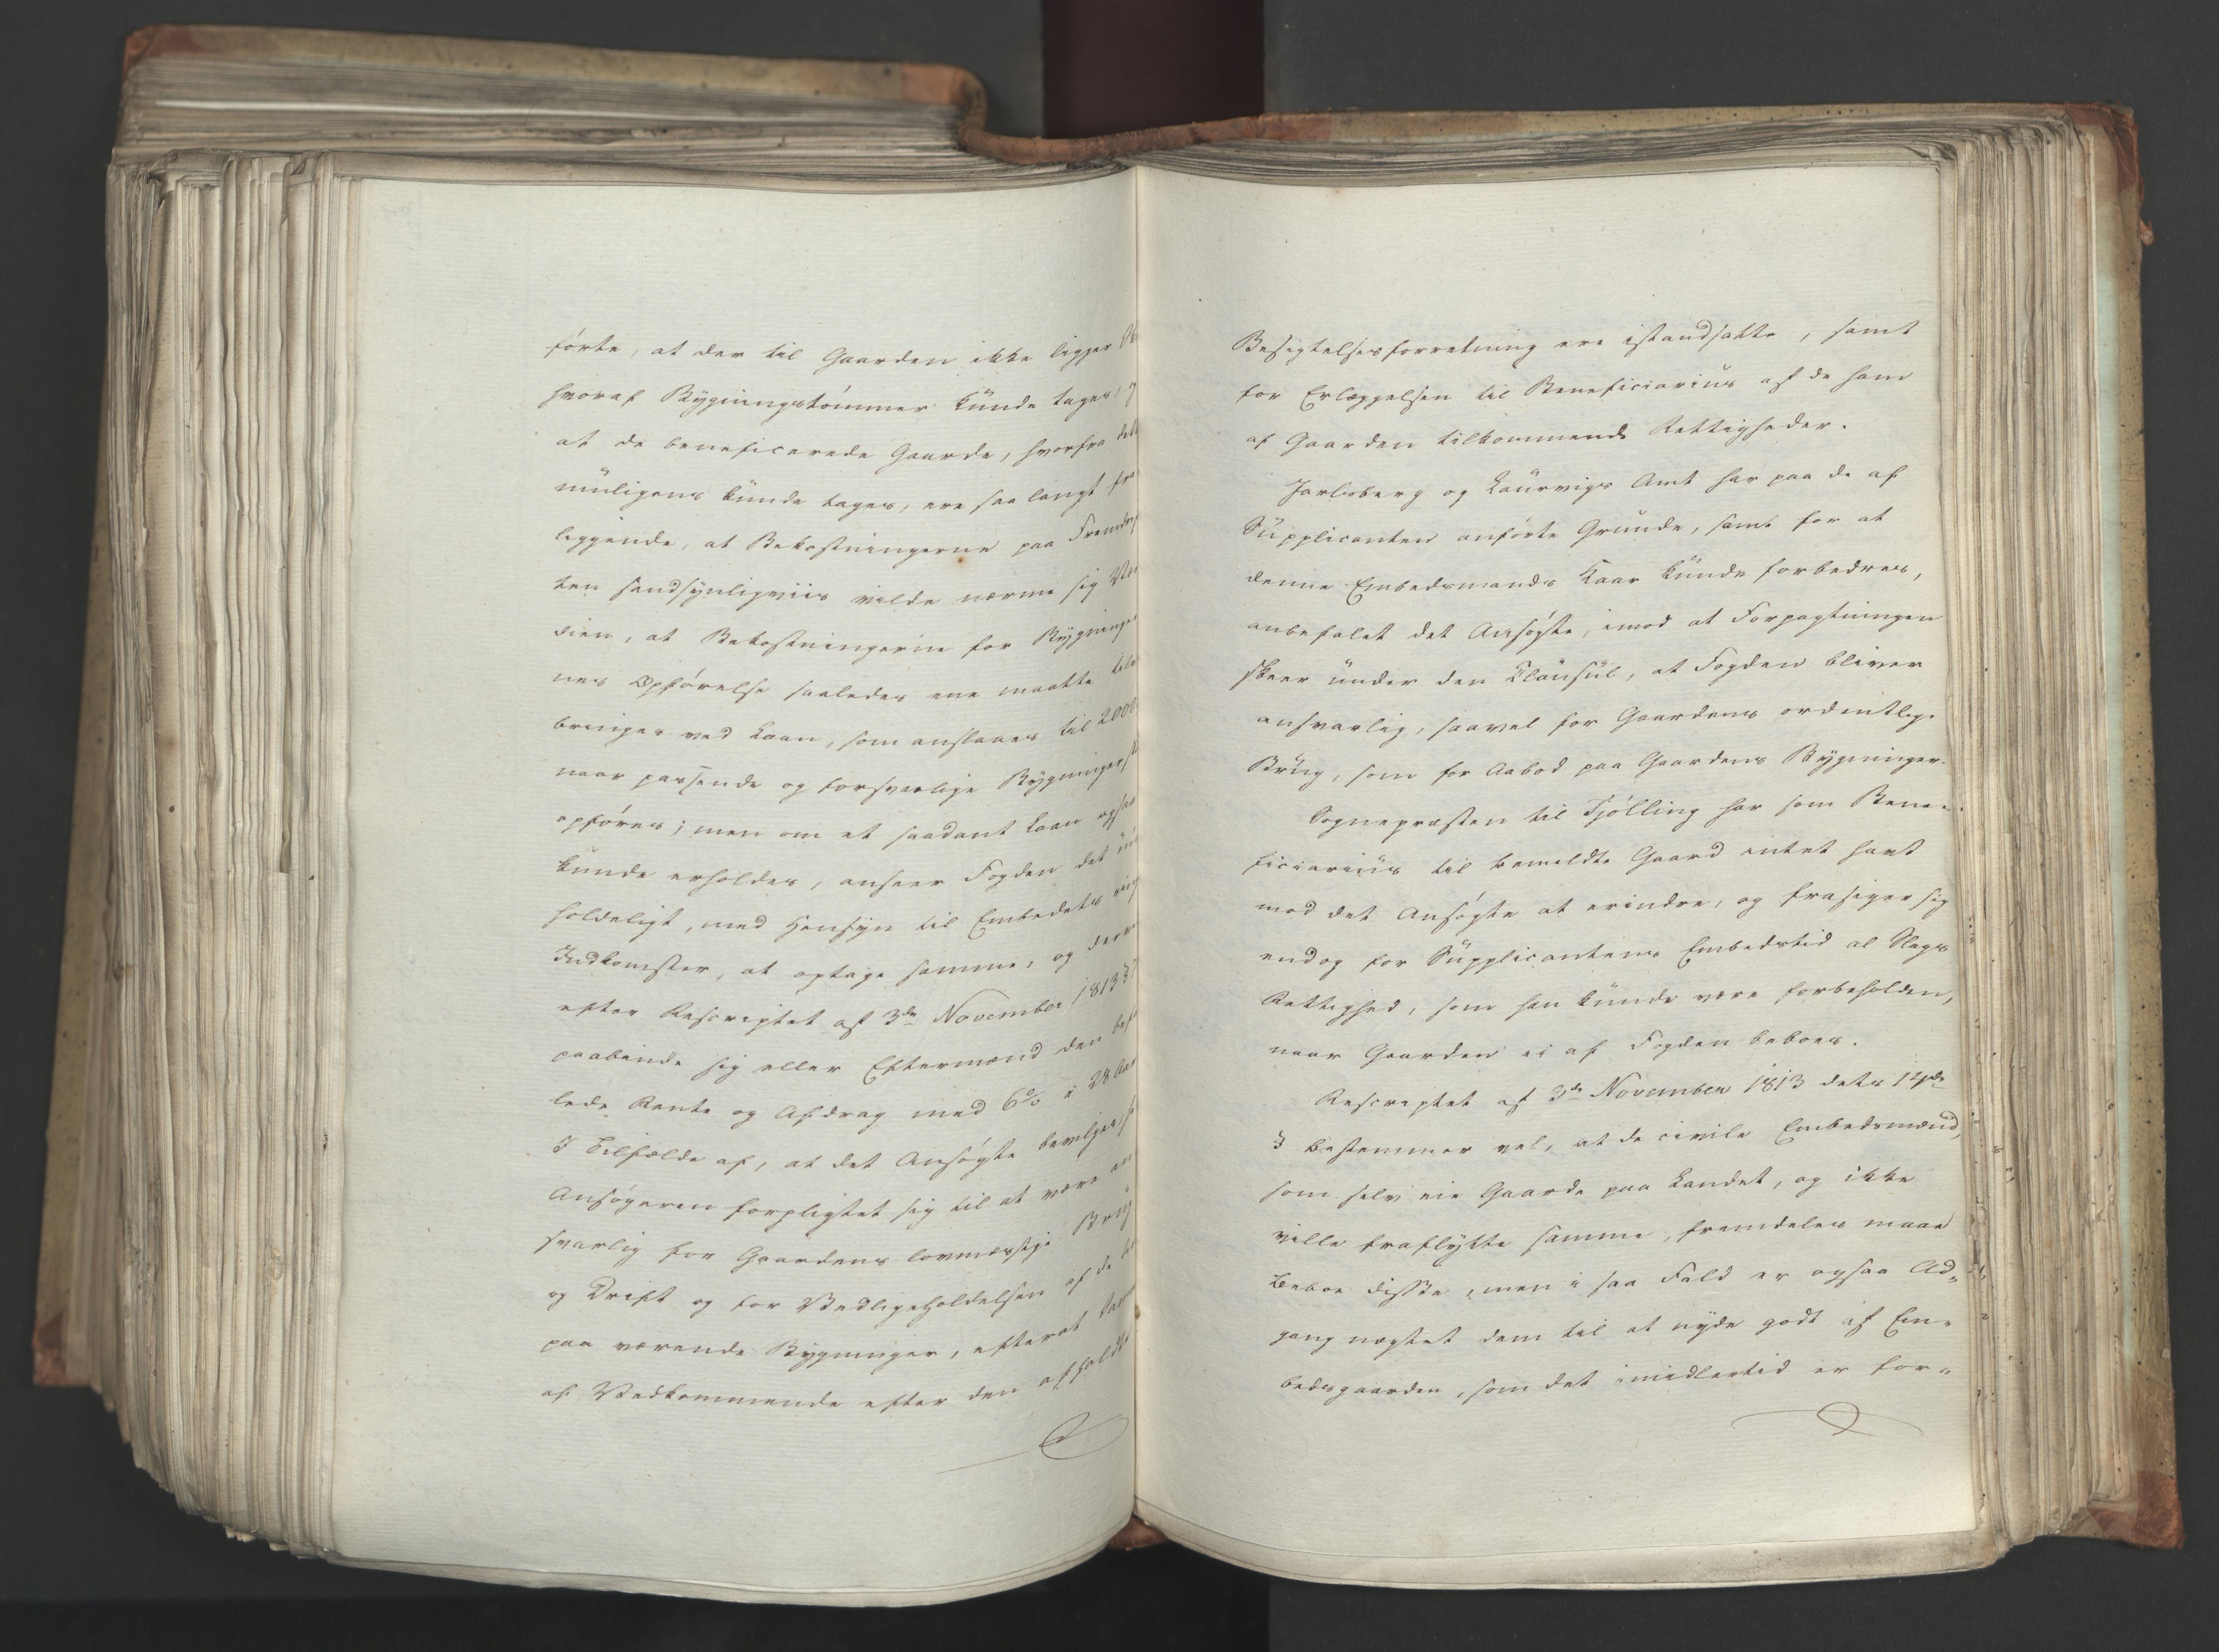 førte, at der til Gaarden ikke ligger
hvoraf Bygningstømmer kunde tages,
at de beneficerede Gaarde, hvorfra
muligens kunde tages, ere saa langt fra
liggende, at Bekostningerne paa
ten sandsynligviis vilde nærme sig
dien, at Bekostningerne for Bygninger
nes Opførelse saaledes ene maatte
bringes ved Laan, som anslaaes til 2000
naar passende og forsvarlige Bygninger
opføres; men om et saadant Laan ogsaa
kunde erholdes, anseer Fogden det
holdeligt, med Hensyn til Embedets
Indkomster, at optage samme, og
efter Rescriptet af 3die November 1813
paabinde sig eller Eftermænd den
lede Rente og Afdrag med 6% i 28 Aar
I Tilfælde af, at det Ansøgte bevilges,
Ansøgeren forpligtet sig til at være an
svarlig for Gaardens lovmæssige Brug
og Drift og for Vedligeholdelsen af de
paa værende Bygninger, efterat
af Vedkommende efter den afholdte
Besigtelsesforretning ere istandsatte, samt
for Erlæggelsen til Beneficiarius af de ham
af Gaarden tilkommende Rettigheder.
Jarlsberg og Laurvigs Amt har paa de af
Supplicanten anførte Grunde, samt for at
denne Embedsmands Kaar kunde forbedres,
anbefalet det Ansøgte, imod at Forpagtningen
skeer under den Clausul, at Fogden bliver
ansvarlig, saavel for Gaardens ordentlige
Brug, som for Aabod paa Gaardens Bygninger.
Sognepræsten til Tjølling har som Bene-
ficiarius til bemeldte Gaard intet havt
mod det Ansøgte at erindre, og frasiger sig
endog for Supplicantens Embedstid al Slags
Rettighed, som han kunde være forbeholden,
naar Gaarden ei af Fogden beboes.
Rescriptet af 3die November 1813 dets 14de
§ bestemmer vel, at de civile Embedsmænd,
som selv eie Gaarde paa Landet, og ikke
ville fraflytte samme, fremdeles maae
beboe disse, men i saa Fald er ogsaa Ad-
gang nægtet dem til at nyde godt af Em-
bedsgaarden, som det imidlertid er for-